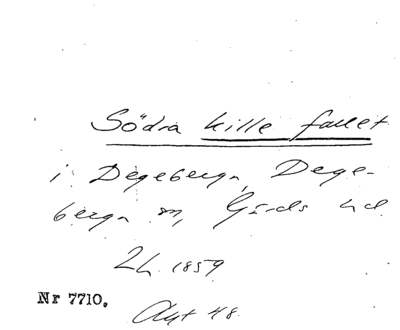 Södra kille fallet
i Degeberga, Dege-
berga sn, Gärds hd
Lh. 1859
Nr 7710.
Akt 48.